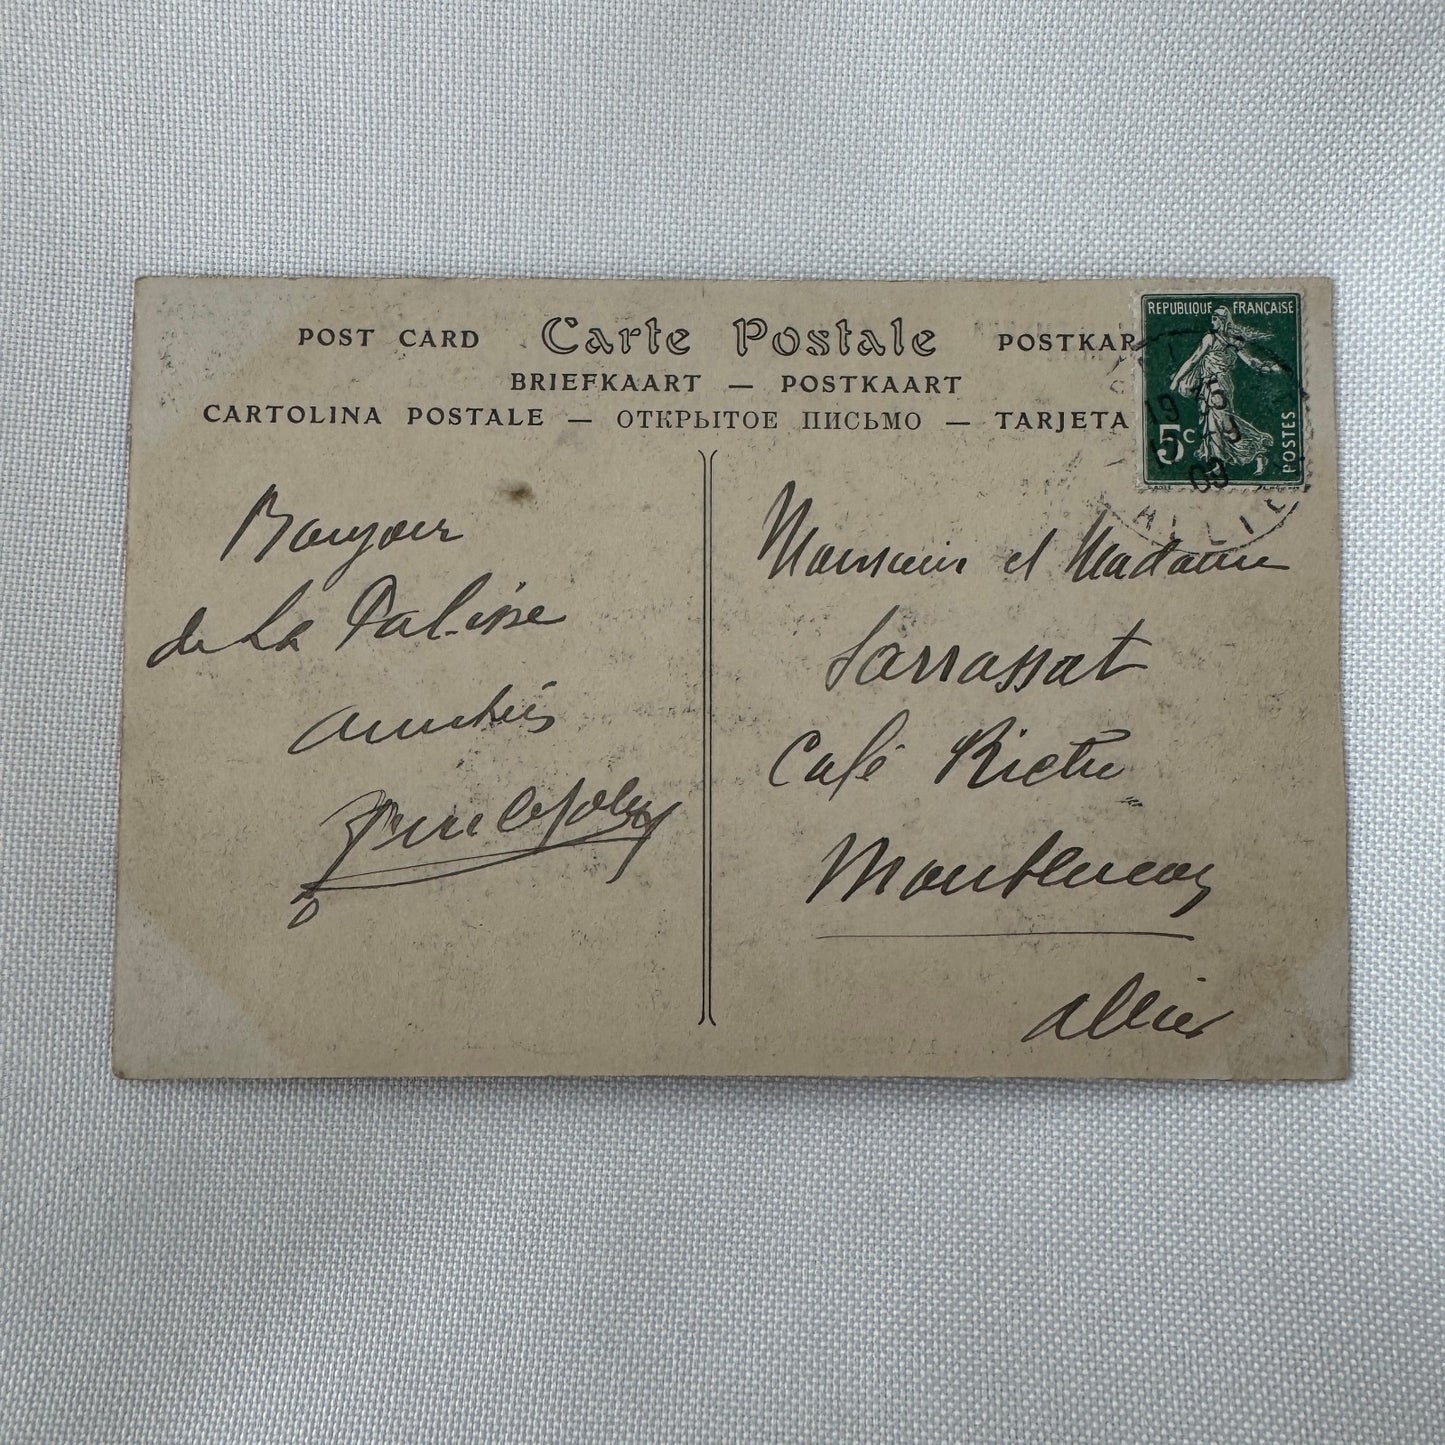 POST CARD Carte Postale POSTKAR
BRIEFKAART — POSTKAART
CARTOLINA POSTALE — ОТКРЫТОЕ ПИСЬМО — TARJETA
REPUBLIQUE FRANÇAISE
5c
POSTES
19 15
9
09
ALLIER
Bonjour
de La Palisse
amitiés
Monsieur et Madame
Sarrassat
Café Riche
Montluçon
Allier